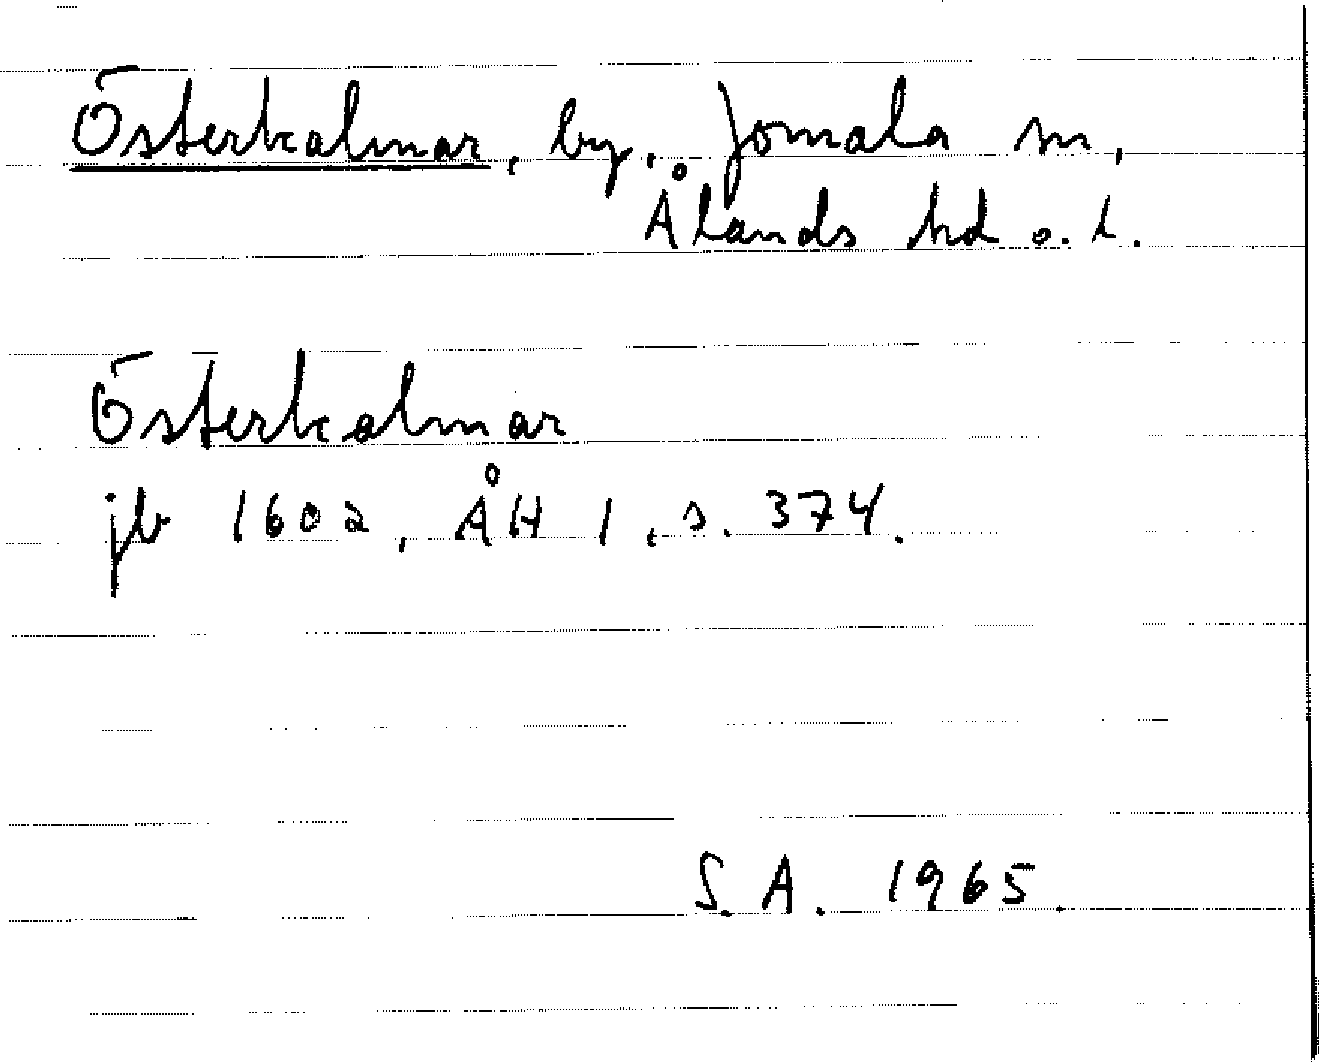 Österkalmar, by, Jomala sn,
Ålands hd o. l.
Österkalmar
jb 1602, ÅH 1, s. 374.
S. A. 1965.